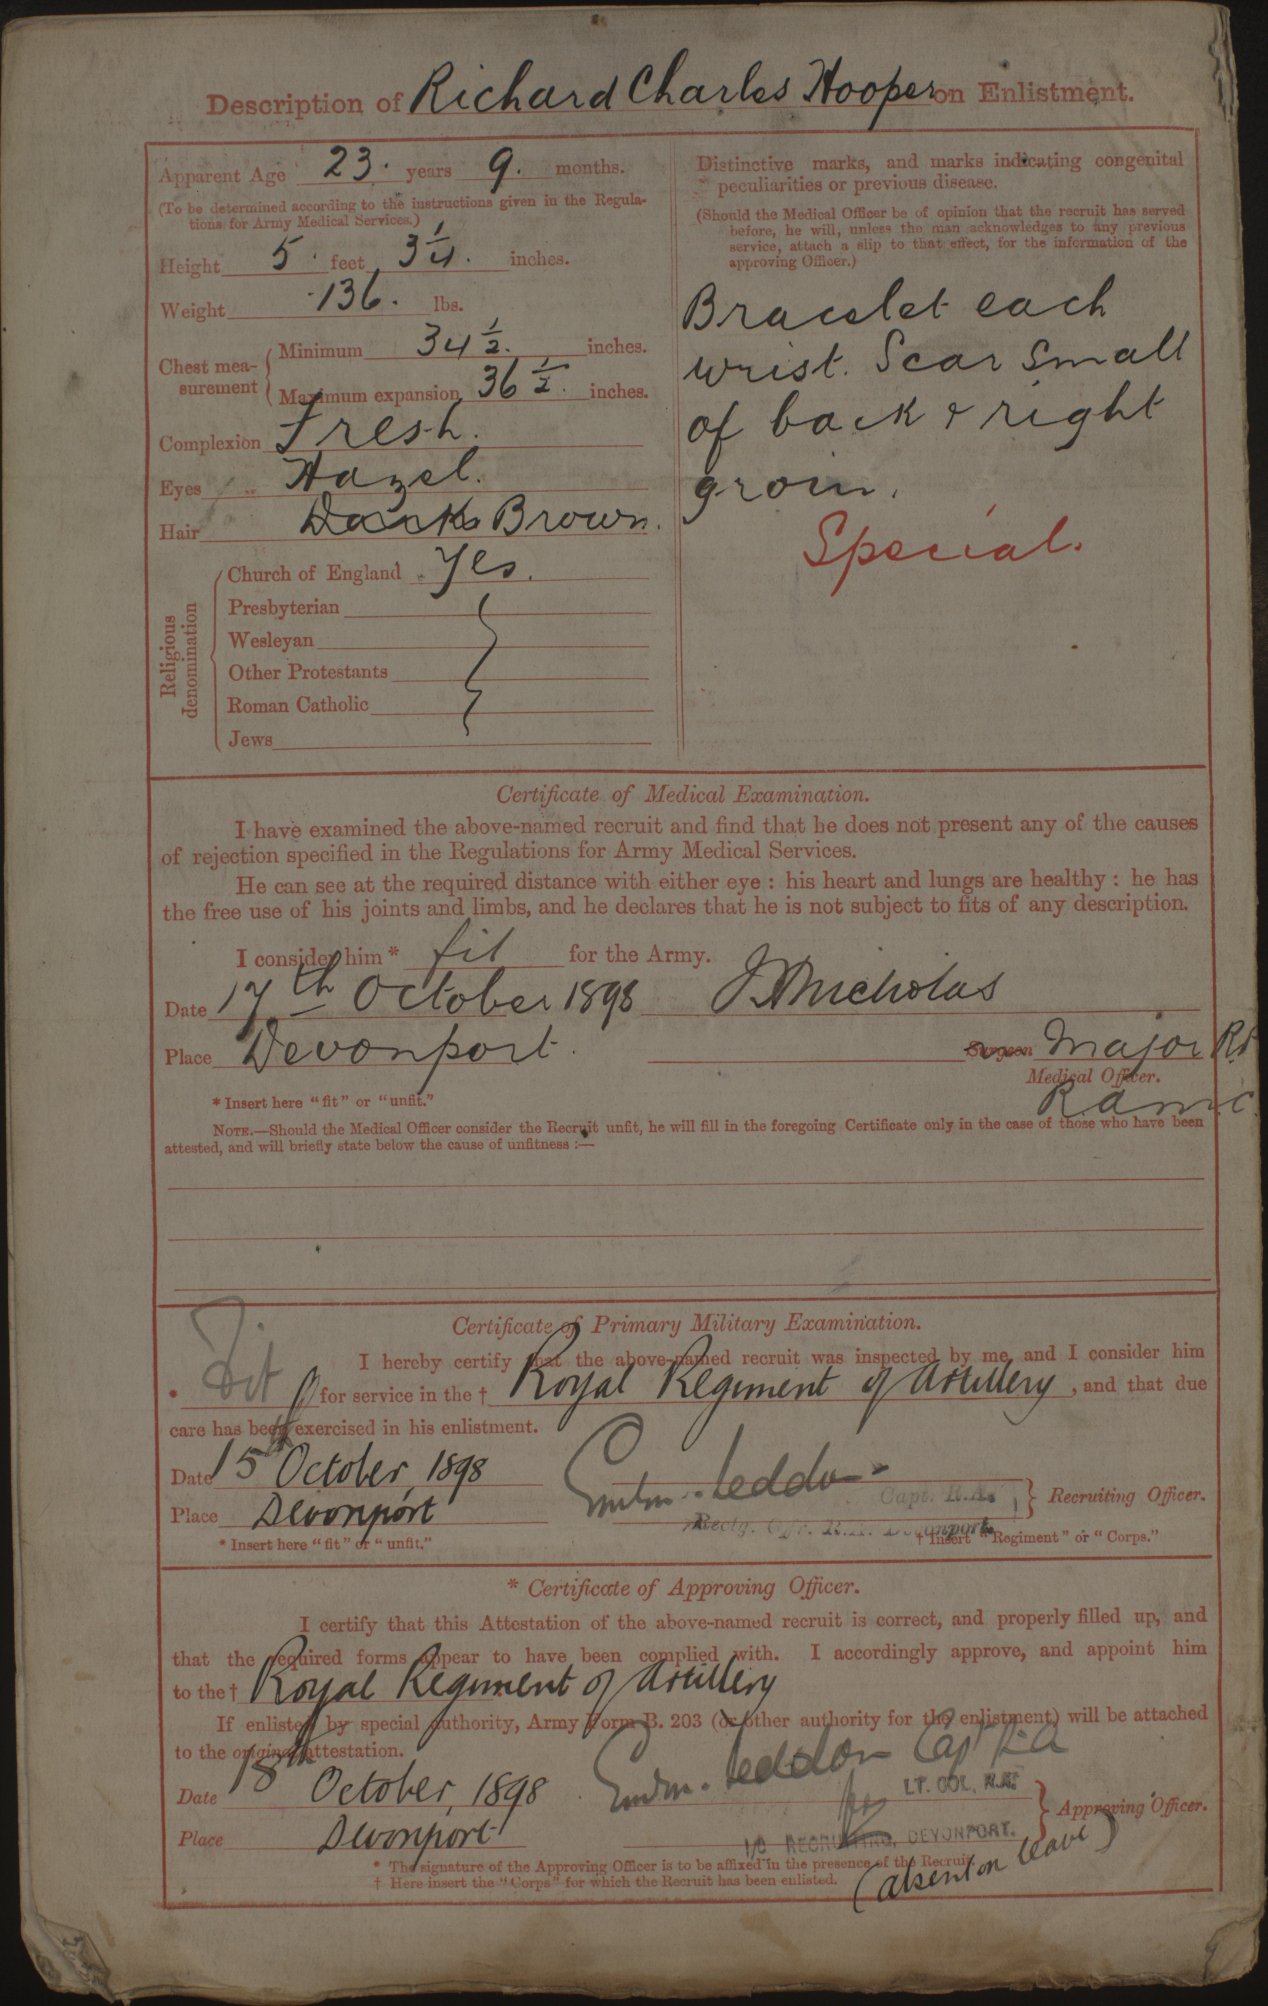 Description of Richard Charles Hooper on Enlistment.
Apparent Age 23. years 9. months.
(To be determined according to the instructions given in the Regula-
tions for Army Medical Services.)
Height 5 feet 3 1/4. inches.
Weight 136. lbs.
Chest mea-
surement
Minimum 34 1/2. inches.
Maximum expansion 36 1/2. inches.
Complexion Fresh.
Eyes Hazel.
Hair Dark Brown.
Religious
denomination
Church of England Yes.
Presbyterian
Wesleyan
Other Protestants
Roman Catholic
Jews
Distinctive marks, and marks indicating congenital
peculiarities or previous disease.
(Should the Medical Officer be of opinion that the recruit has served
before, he will, unless the man acknowledges to any previous
service, attach a slip to that effect, for the information of the
approving Officer.)
Bracelet each
wrist. Scar small
of back & right
groin.
Special.
Certificate of Medical Examination.
I have examined the above-named recruit and find that he does not present any of the causes
of rejection specified in the Regulations for Army Medical Services.
He can see at the required distance with either eye : his heart and lungs are healthy : he has
the free use of his joints and limbs, and he declares that he is not subject to fits of any description.
I consider him * fit for the Army.
Date 17th October 1898 Nicholas
Place Devonport. Surgeon Major Rt
Medical Officer.
RAMC
* Insert here "fit" or "unfit."
NOTE.—Should the Medical Officer consider the Recruit unfit, he will fill in the foregoing Certificate only in the case of those who have been
attested, and will briefly state below the cause of unfitness :—
Certificate of Primary Military Examination.
I hereby certify that the above-named recruit was inspected by me, and I consider him
* Fit for service in the † Royal Regiment of Artillery, and that due
care has been exercised in his enlistment.
Date 15th October, 1898
Capt. R.A.
Recruiting Officer.
Place Devonport
Rectg. Offr. R.A. Devonport.
* Insert here "fit" or "unfit."
† Insert "Regiment" or "Corps."
* Certificate of Approving Officer.
I certify that this Attestation of the above-named recruit is correct, and properly filled up, and
that the required forms appear to have been complied with. I accordingly approve, and appoint him
to the † Royal Regiment of Artillery
If enlisted by special authority, Army Form B. 203 (or other authority for the enlistment) will be attached
to the original attestation.
Capt RA
Date 18th October, 1898
for LT. COL. R.A.
Approving Officer.
Place Devonport
I/C RECRUITING, DEVONPORT.
(absent on leave)
* The signature of the Approving Officer is to be affixed in the presence of the Recruit.
† Here insert the "Corps" for which the Recruit has been enlisted.